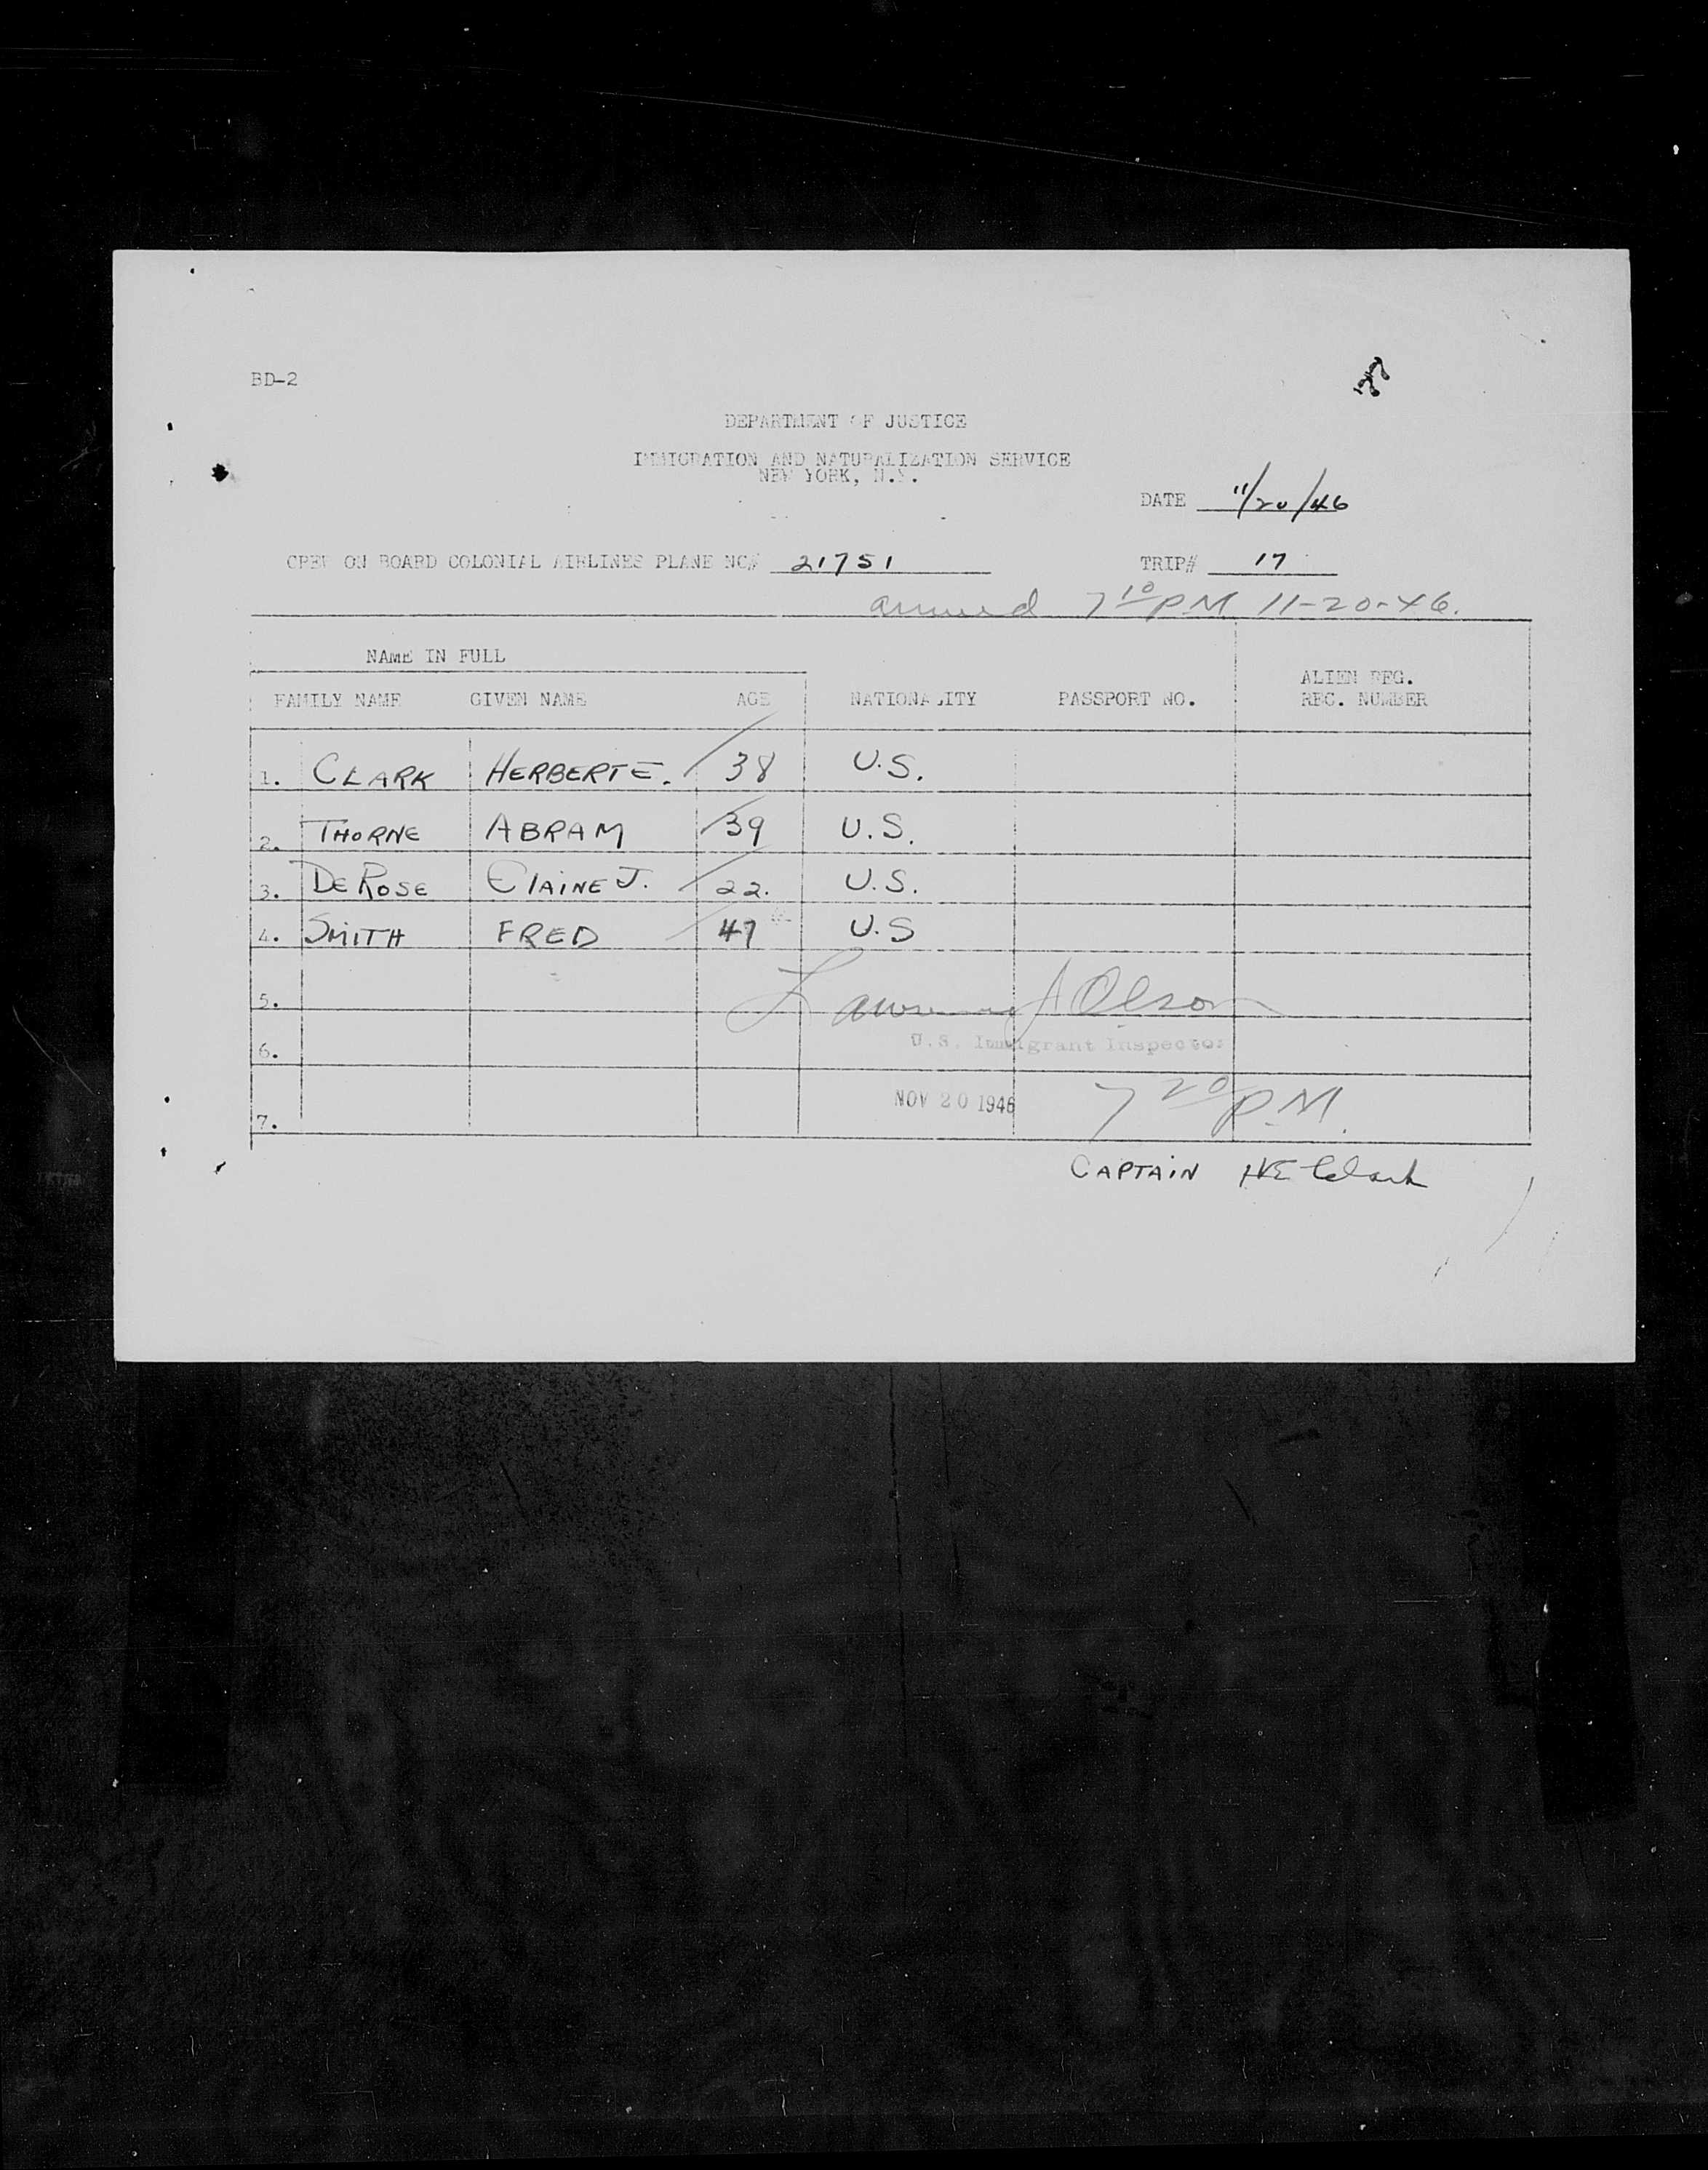 BD-2
DEPARTMENT OF JUSTICE
IMMIGRATION AND NATURALIZATION SERVICE
NEW YORK, N.Y.
DATE 11/20/46
CREW ON BOARD COLONIAL AIRLINES PLANE NC# 21751 TRIP# 17
arrived 7 10 PM 11-20-46.
NAME IN FULL
FAMILY NAME GIVEN NAME AGE NATIONALITY PASSPORT NO. ALIEN REG.
REC. NUMBER
1. CLARK HERBERT E. 38 U.S.
2. THORNE ABRAM 39 U.S.
3. DE ROSE ELAINE J. 22. U.S.
4. SMITH FRED 47 U.S
5. Lawrence A Olson
6. U.S. Immigrant Inspector
7. NOV 20 1946 7 20 P.M.
CAPTAIN HE Clark